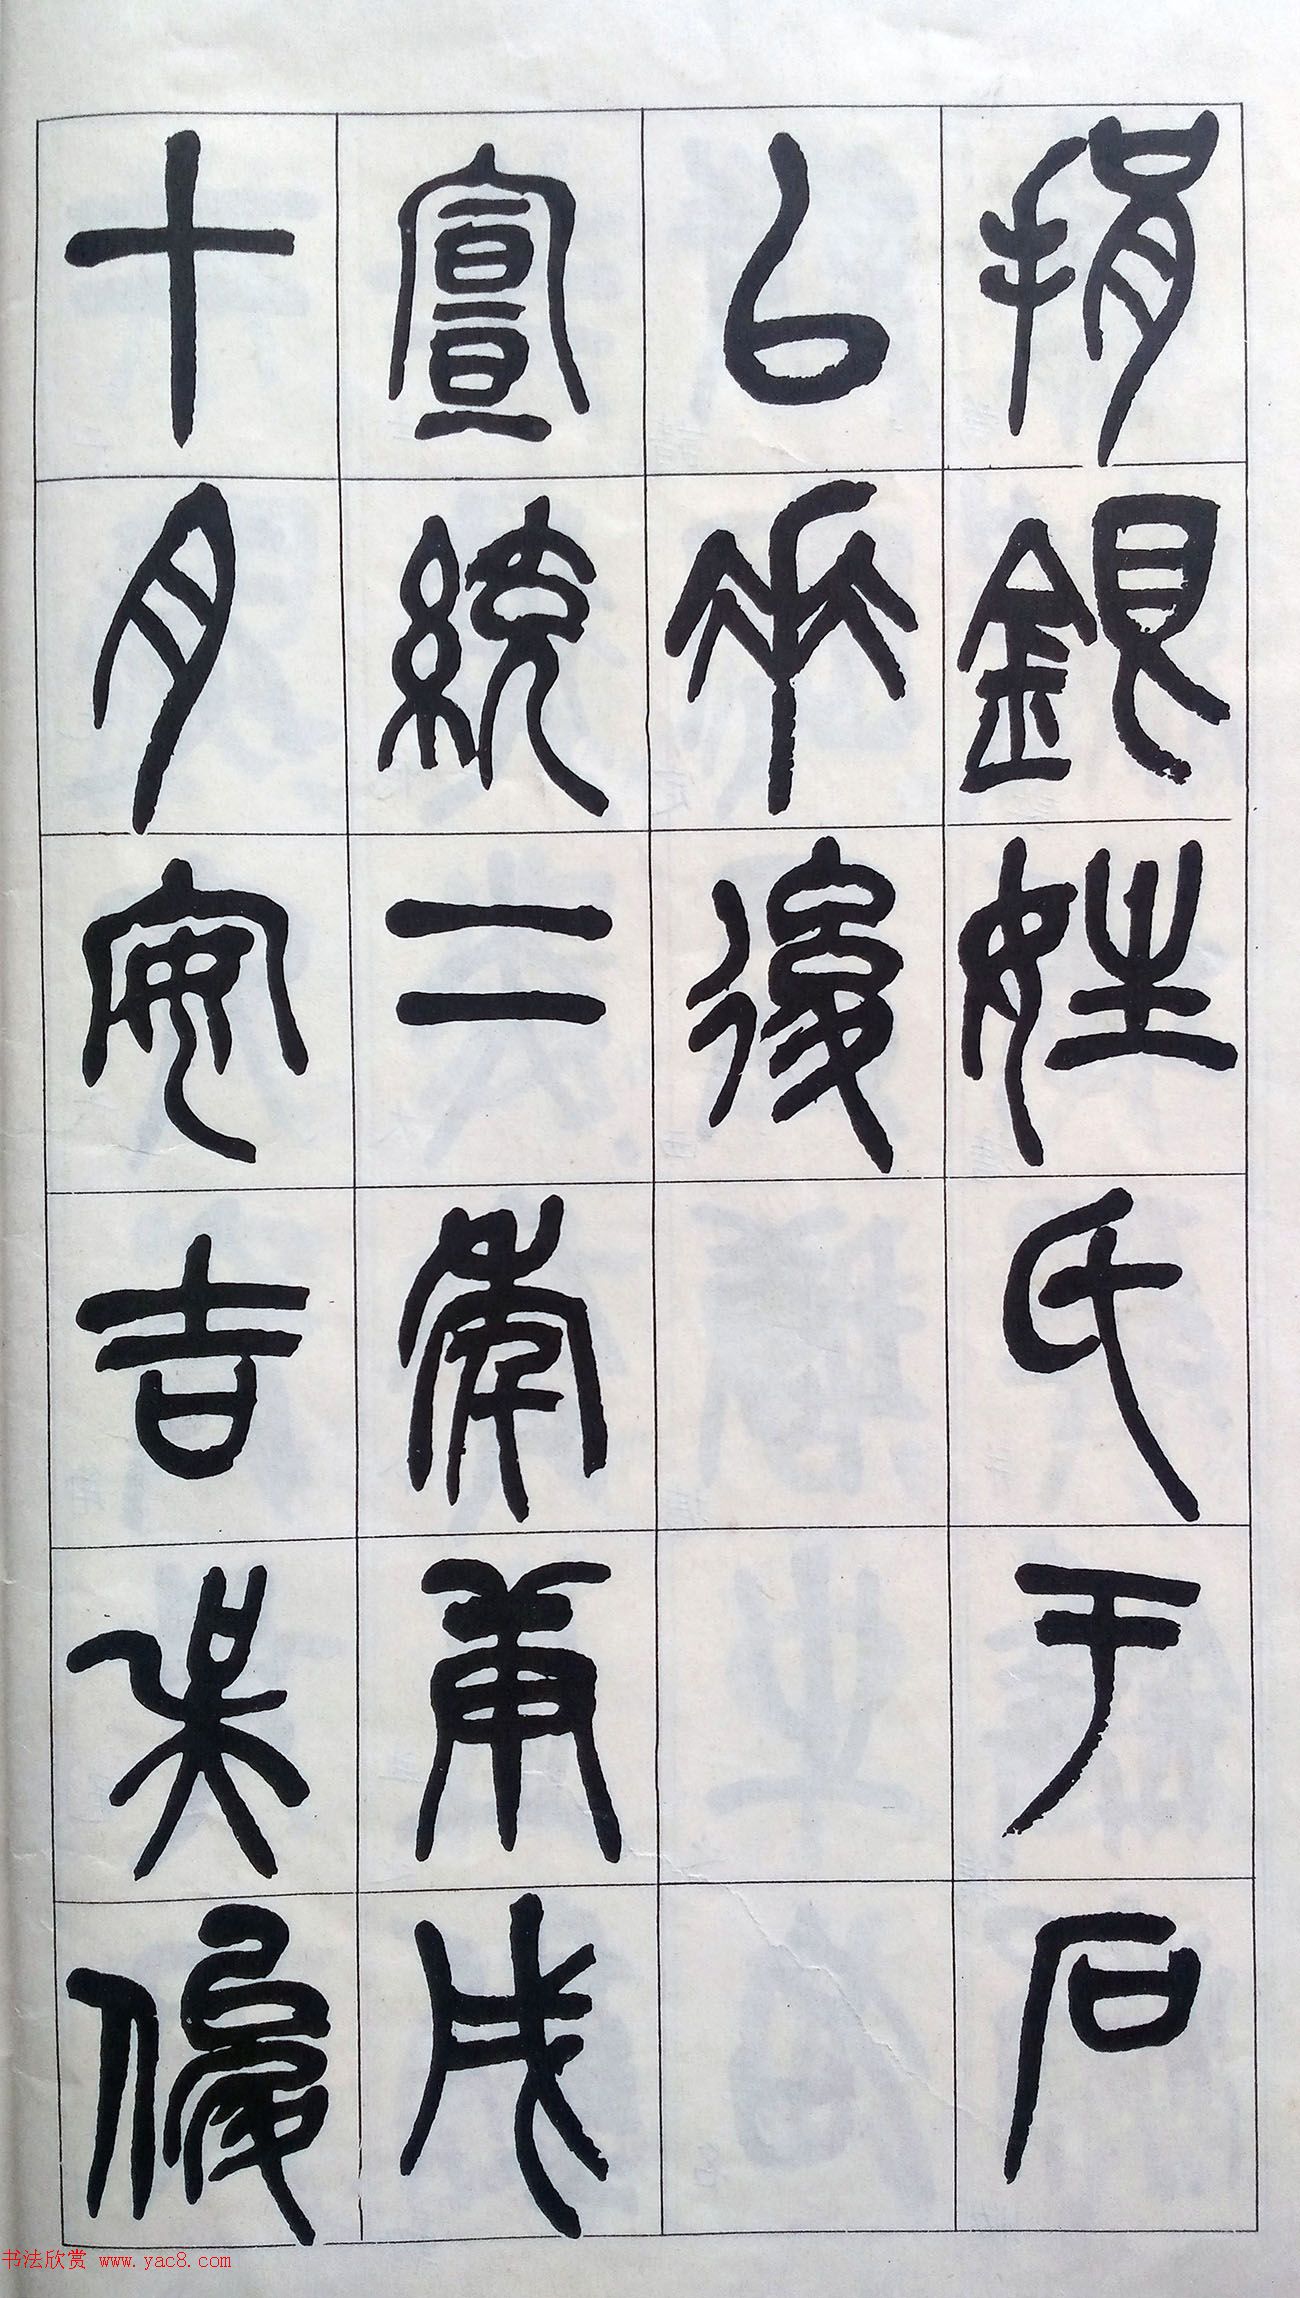 捐銀姓氏于石
以垂後
宣統二年庚戌
十月安吉吳俊
书法欣赏 www.yac8.com